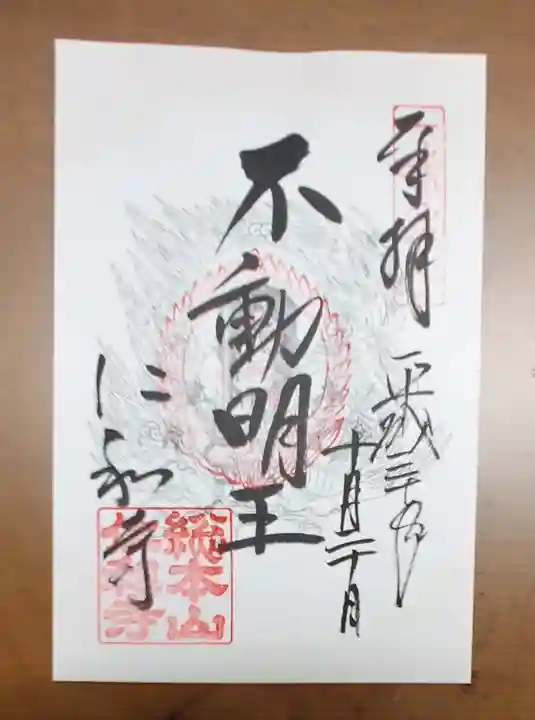 奉拝
平成二十九年
十月二十日
不動明王
仁和寺
総本山
仁和寺